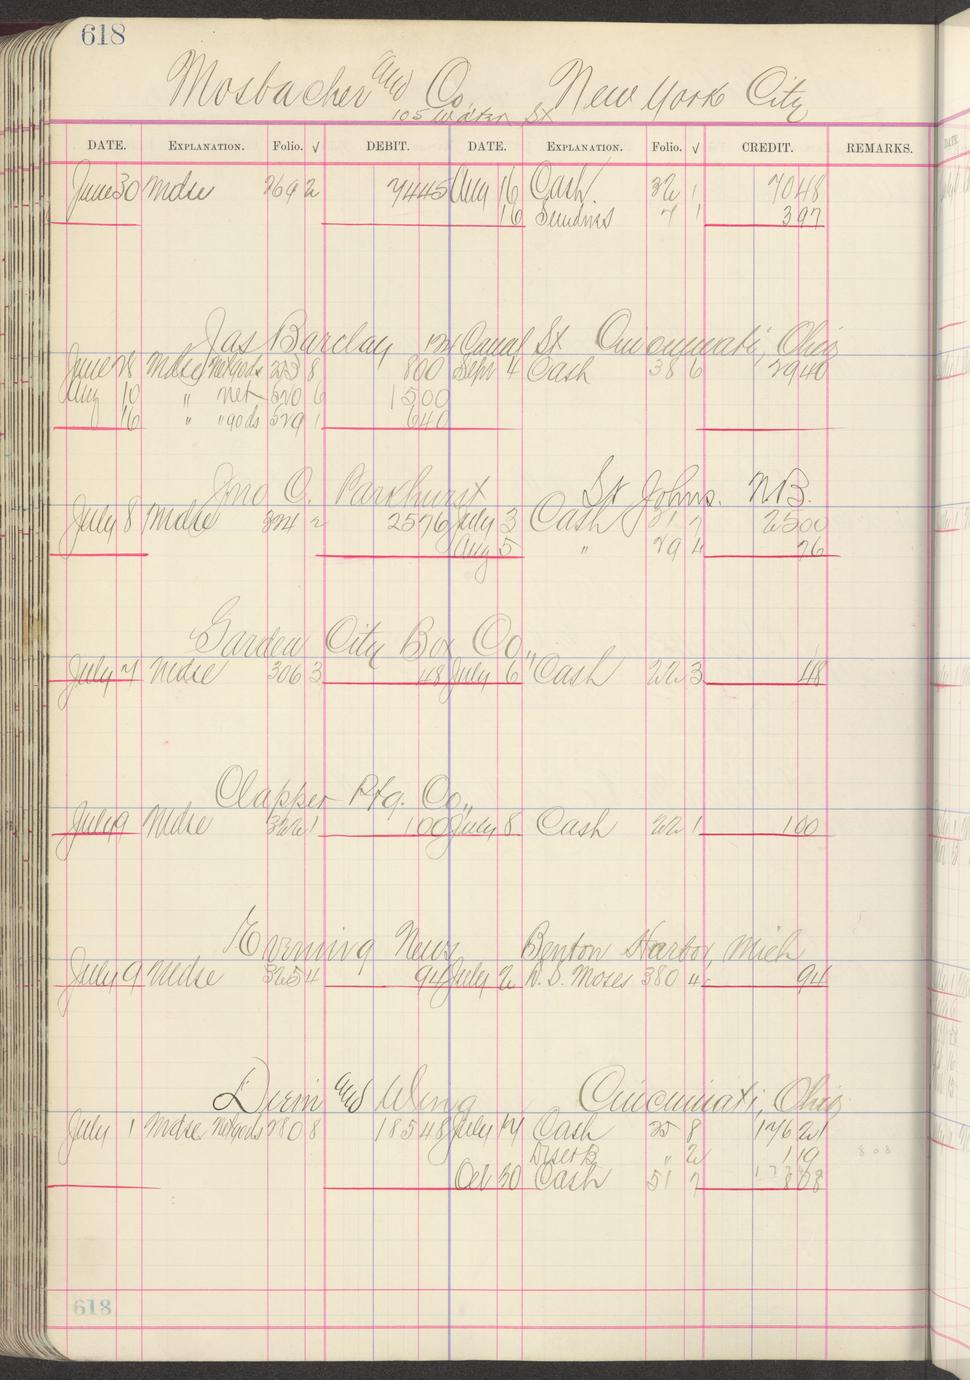 618
Mosbacher and Co. New York City
105 Walker St
DATE. EXPLANATION. Folio. √ DEBIT. DATE. EXPLANATION. Folio. √ CREDIT. REMARKS.
June 30 Mdse 269 2 7445 Aug 16 Cash 32 1 7048
16 Sundries 7 1 397
Jas Barclay Canal St Cincinnati, Ohio
June 28 Mdse Notgods 253 8 800 Sept 4 Cash 38 6 2940
Aug 10 " net 520 6 1500
16 " " gods 529 1 640
Jno O. Parkhurst St Johns. N.B.
July 8 Mdse 324 2 2576 July 3 Cash 31 7 2500
Aug 5 " 29 4 76
Garden City Box Co.,
July 7 Mdse 306 3 48 July 6 Cash 22 3 48
Clapper Ptg. Co.,
July 9 Mdse 322 1 100 July 8 Cash 22 1 100
Evening News Benton Harbor, Mich
July 9 Mdse 325 4 94 July 2 D. S. Moses 380 4 94
Diem and Wing Cincinnati, Ohio
July 1 Mdse Notgods 280 8 18548 July 14 Cash 25 8 17621
Disct B " 2 119
Oct 30 Cash 51 7 808
808
618